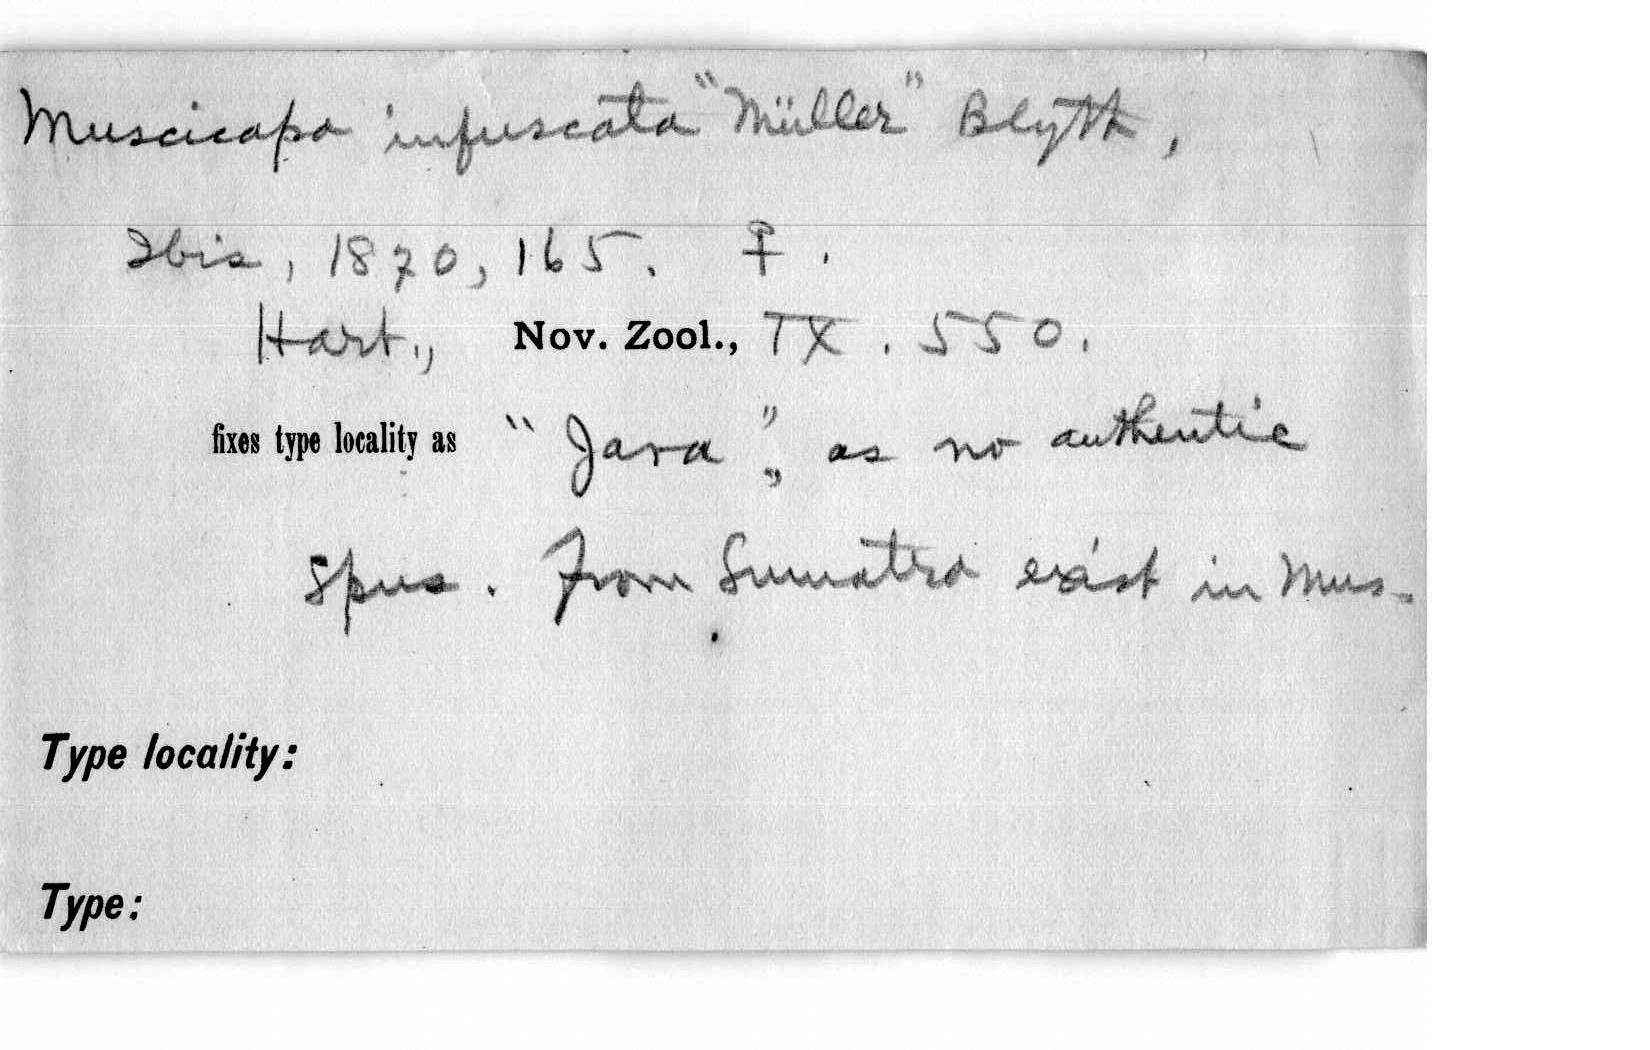 Muscicapa infuscata "Müller" Blyth,
Ibis, 1870, 165. ♀.
Hart., Nov. Zool., IX. 550.
fixes type locality as "Java", as no authentic
Spns. from Sumatra exist in Mus.
Type locality:
Type: